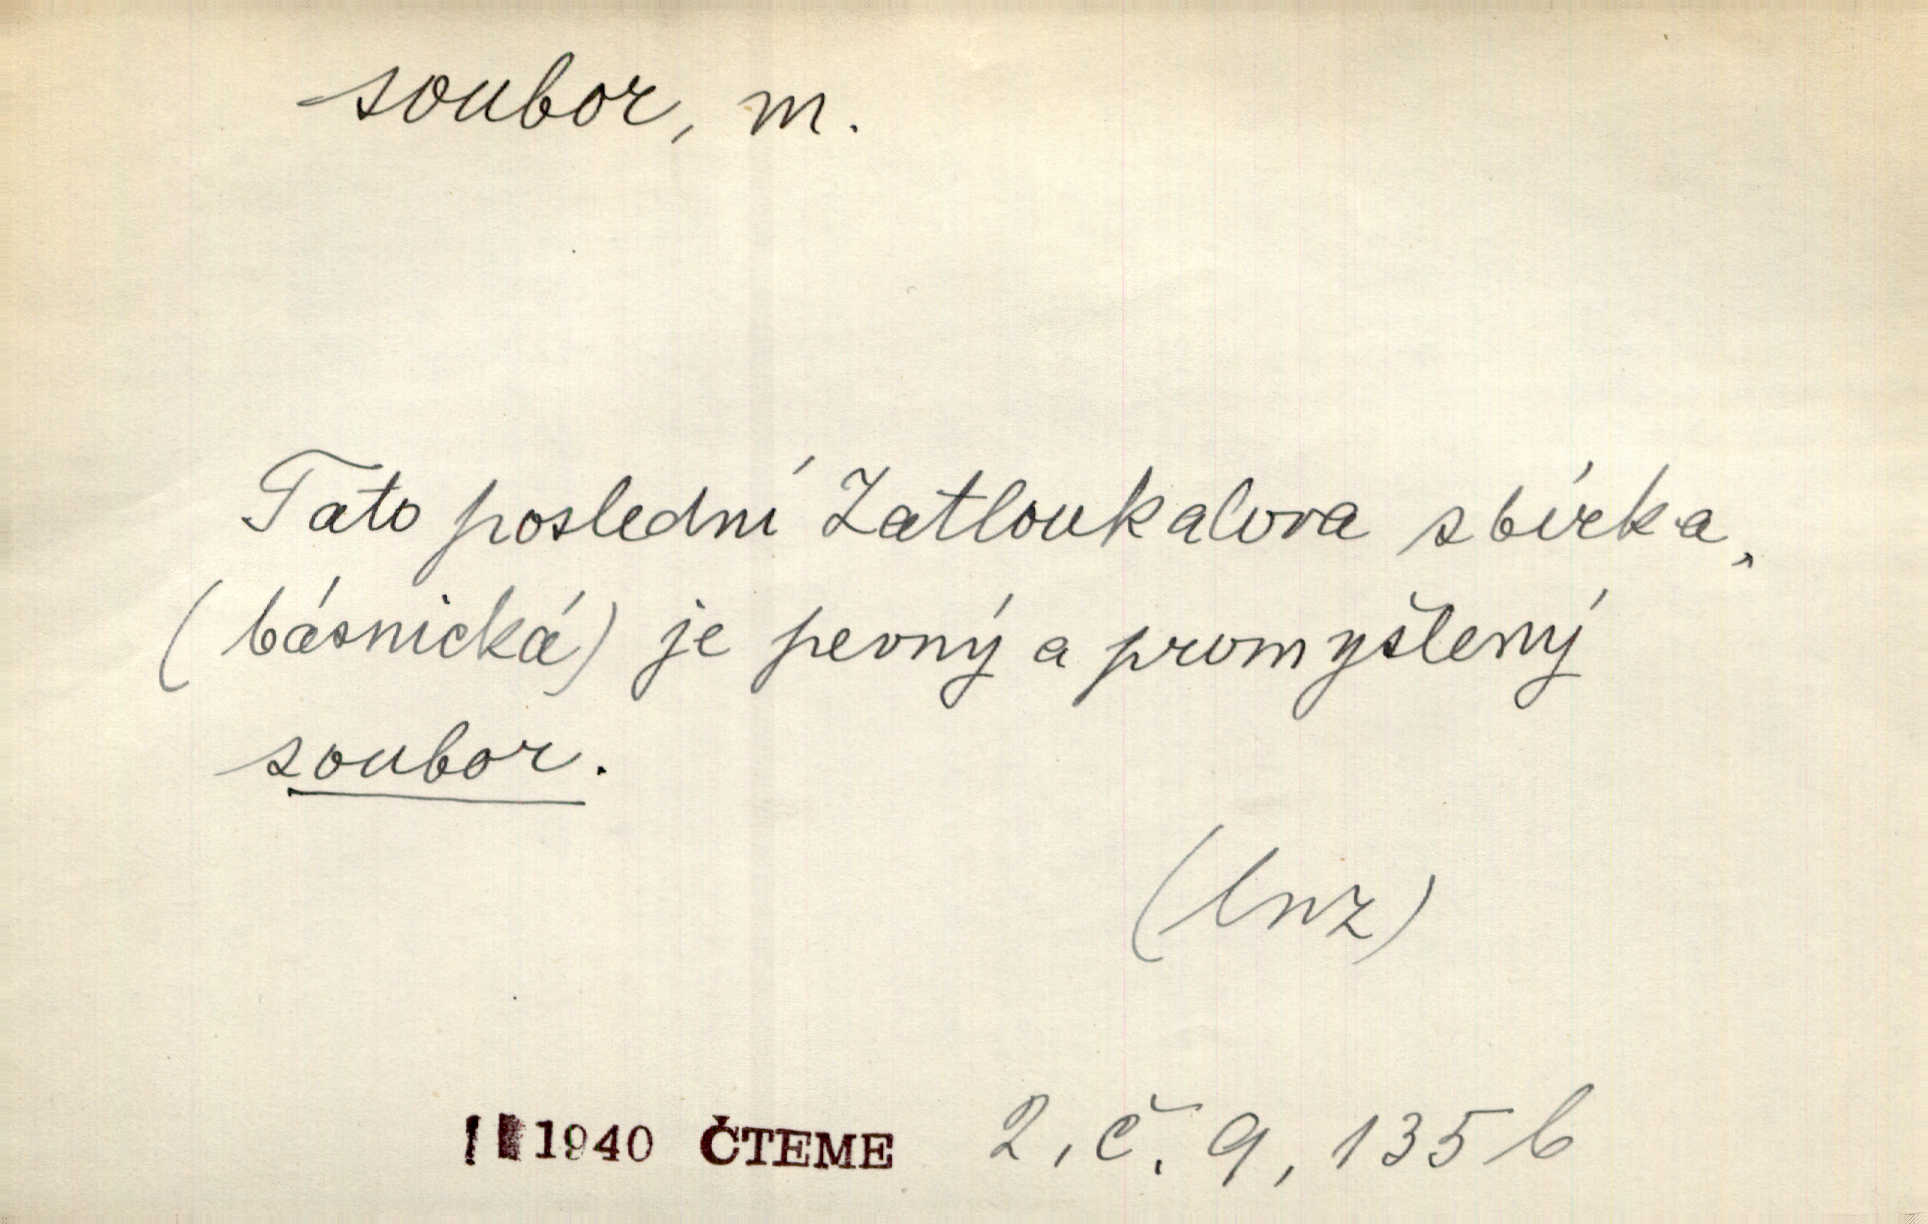 soubor, m.
Tato poslední Zatloukalova sbírka,
(básnická) je pevný a promyšlený
soubor.
(lnz)
1940 ČTEME 2, č. 9, 135 b